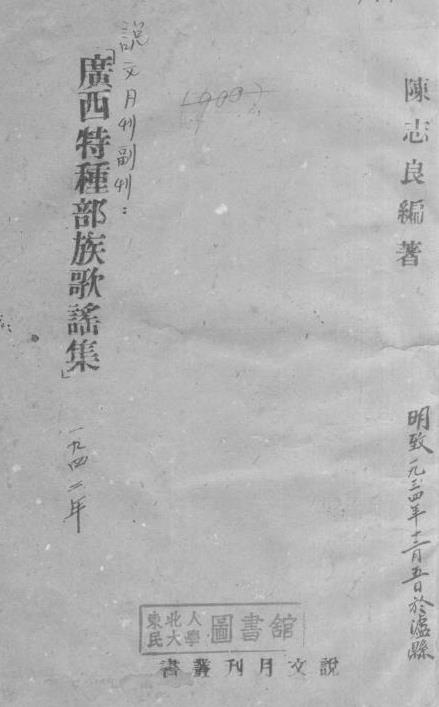 陳志良編著
明致一九三四年十二月五日於瀘縣
說文月刊副刊：
「廣西特種部族歌謠集」
一九四二年
東北人
民大學
圖書館
說文月刊叢書